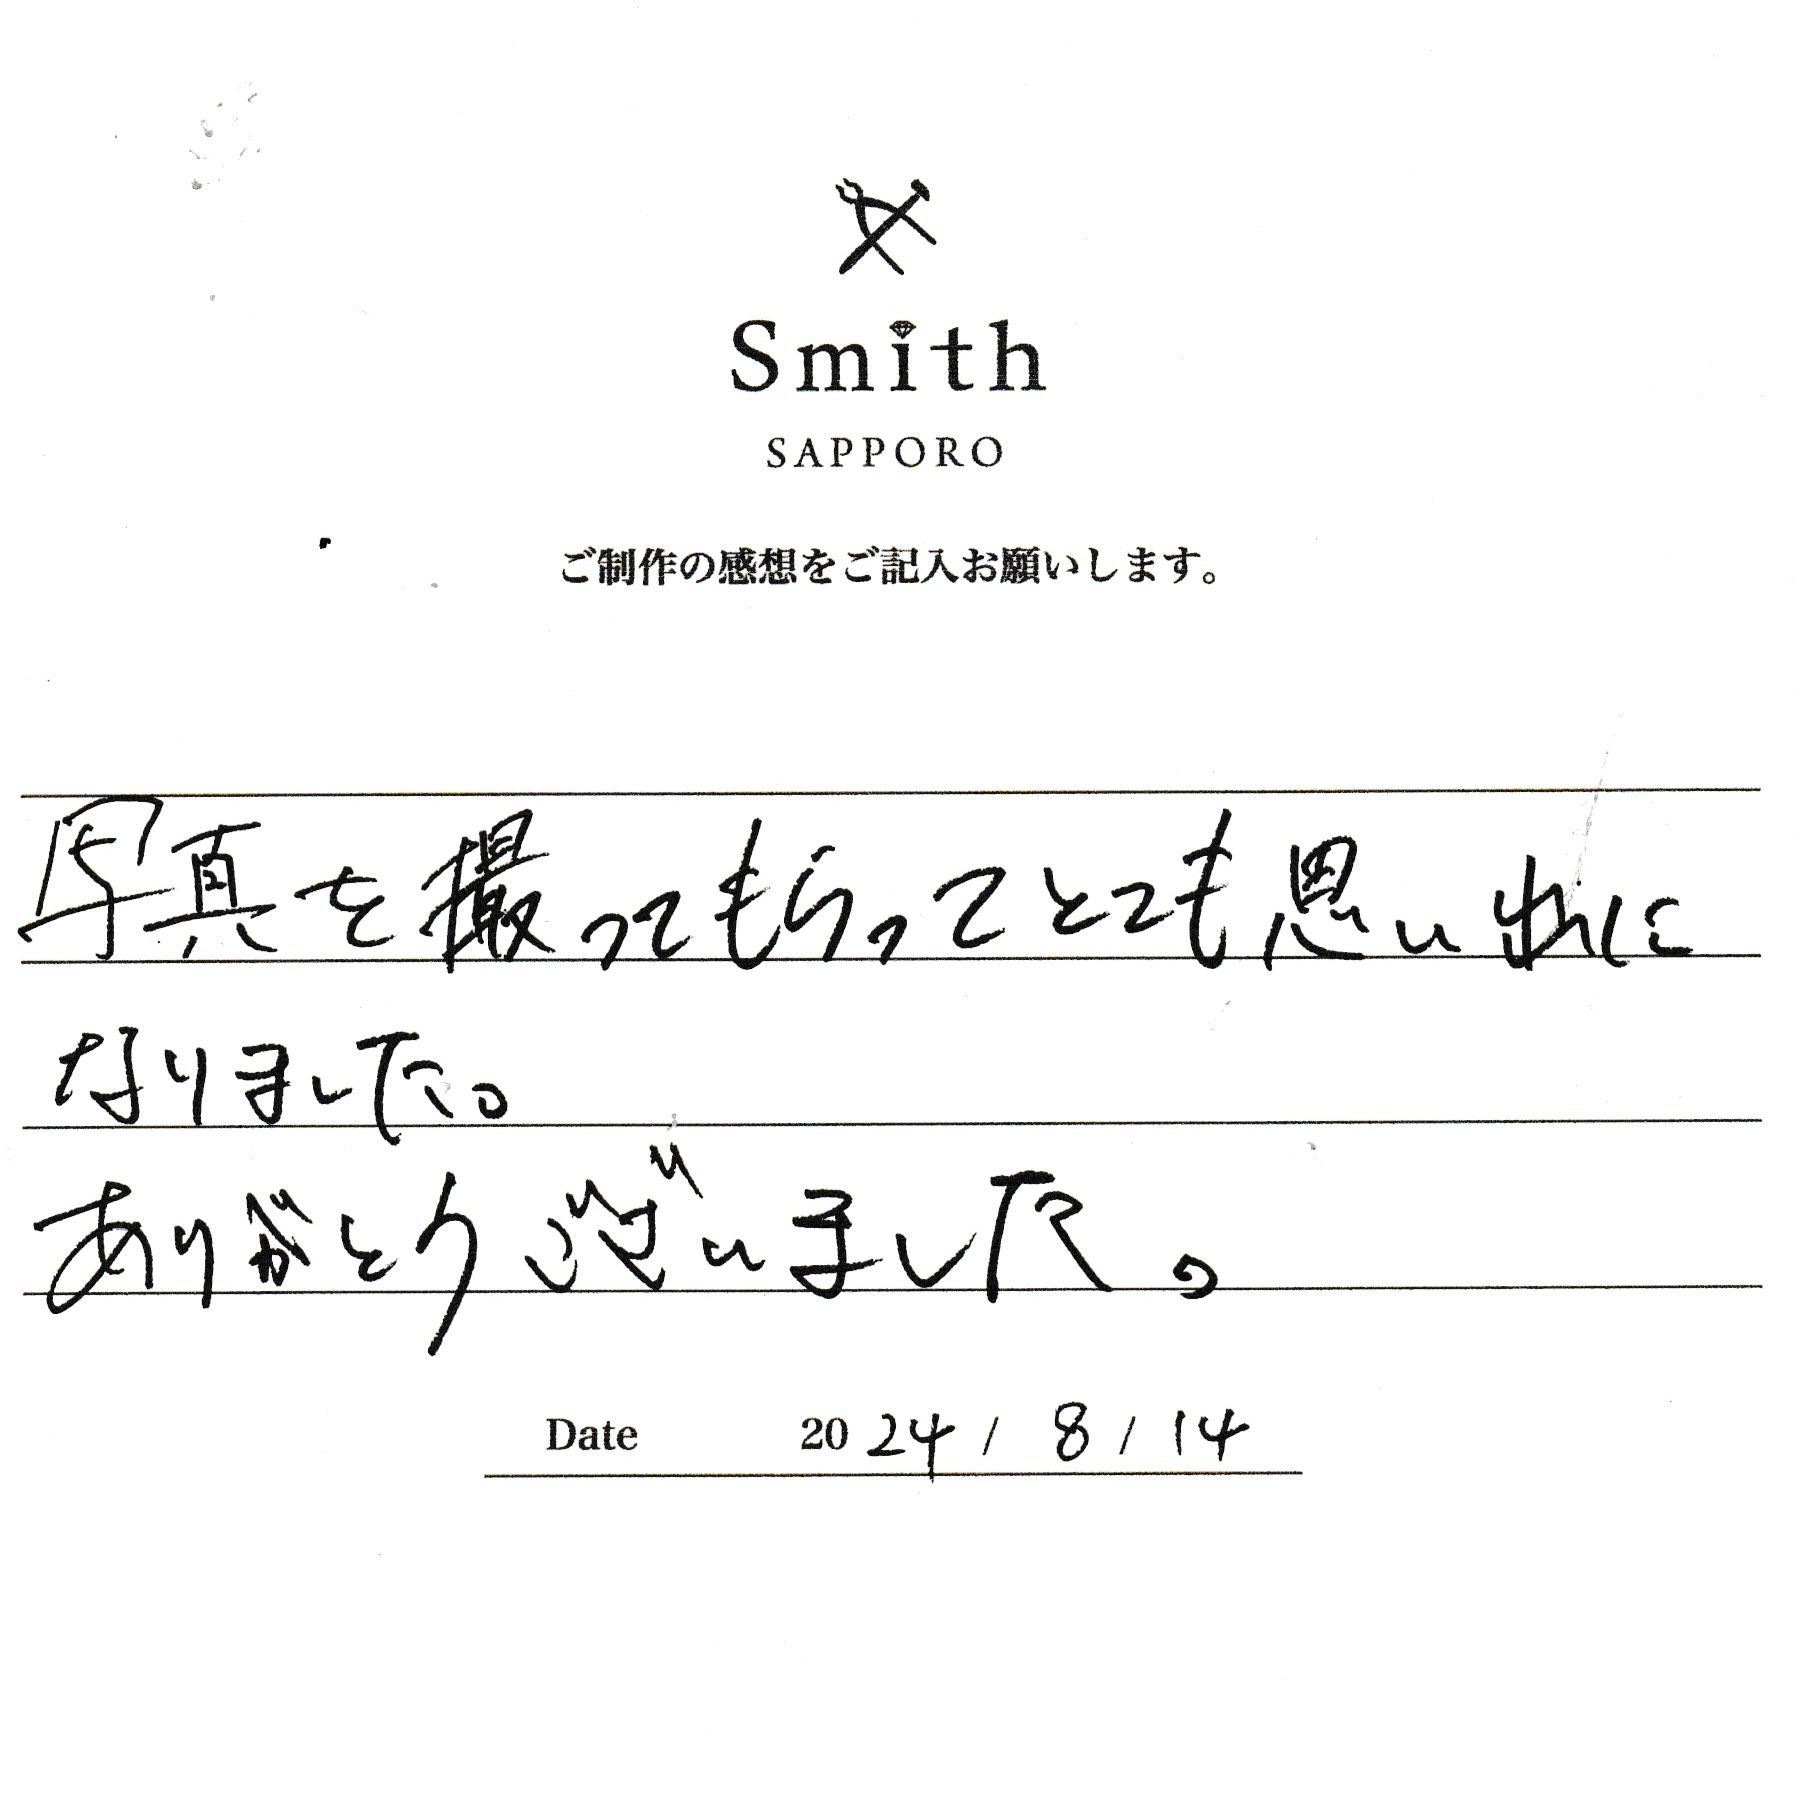 Smith
SAPPORO
ご制作の感想をご記入お願いします。
写真を撮ってもらってとても思い出に
なりました。
ありがとうございました。
Date 2024 / 8 / 14